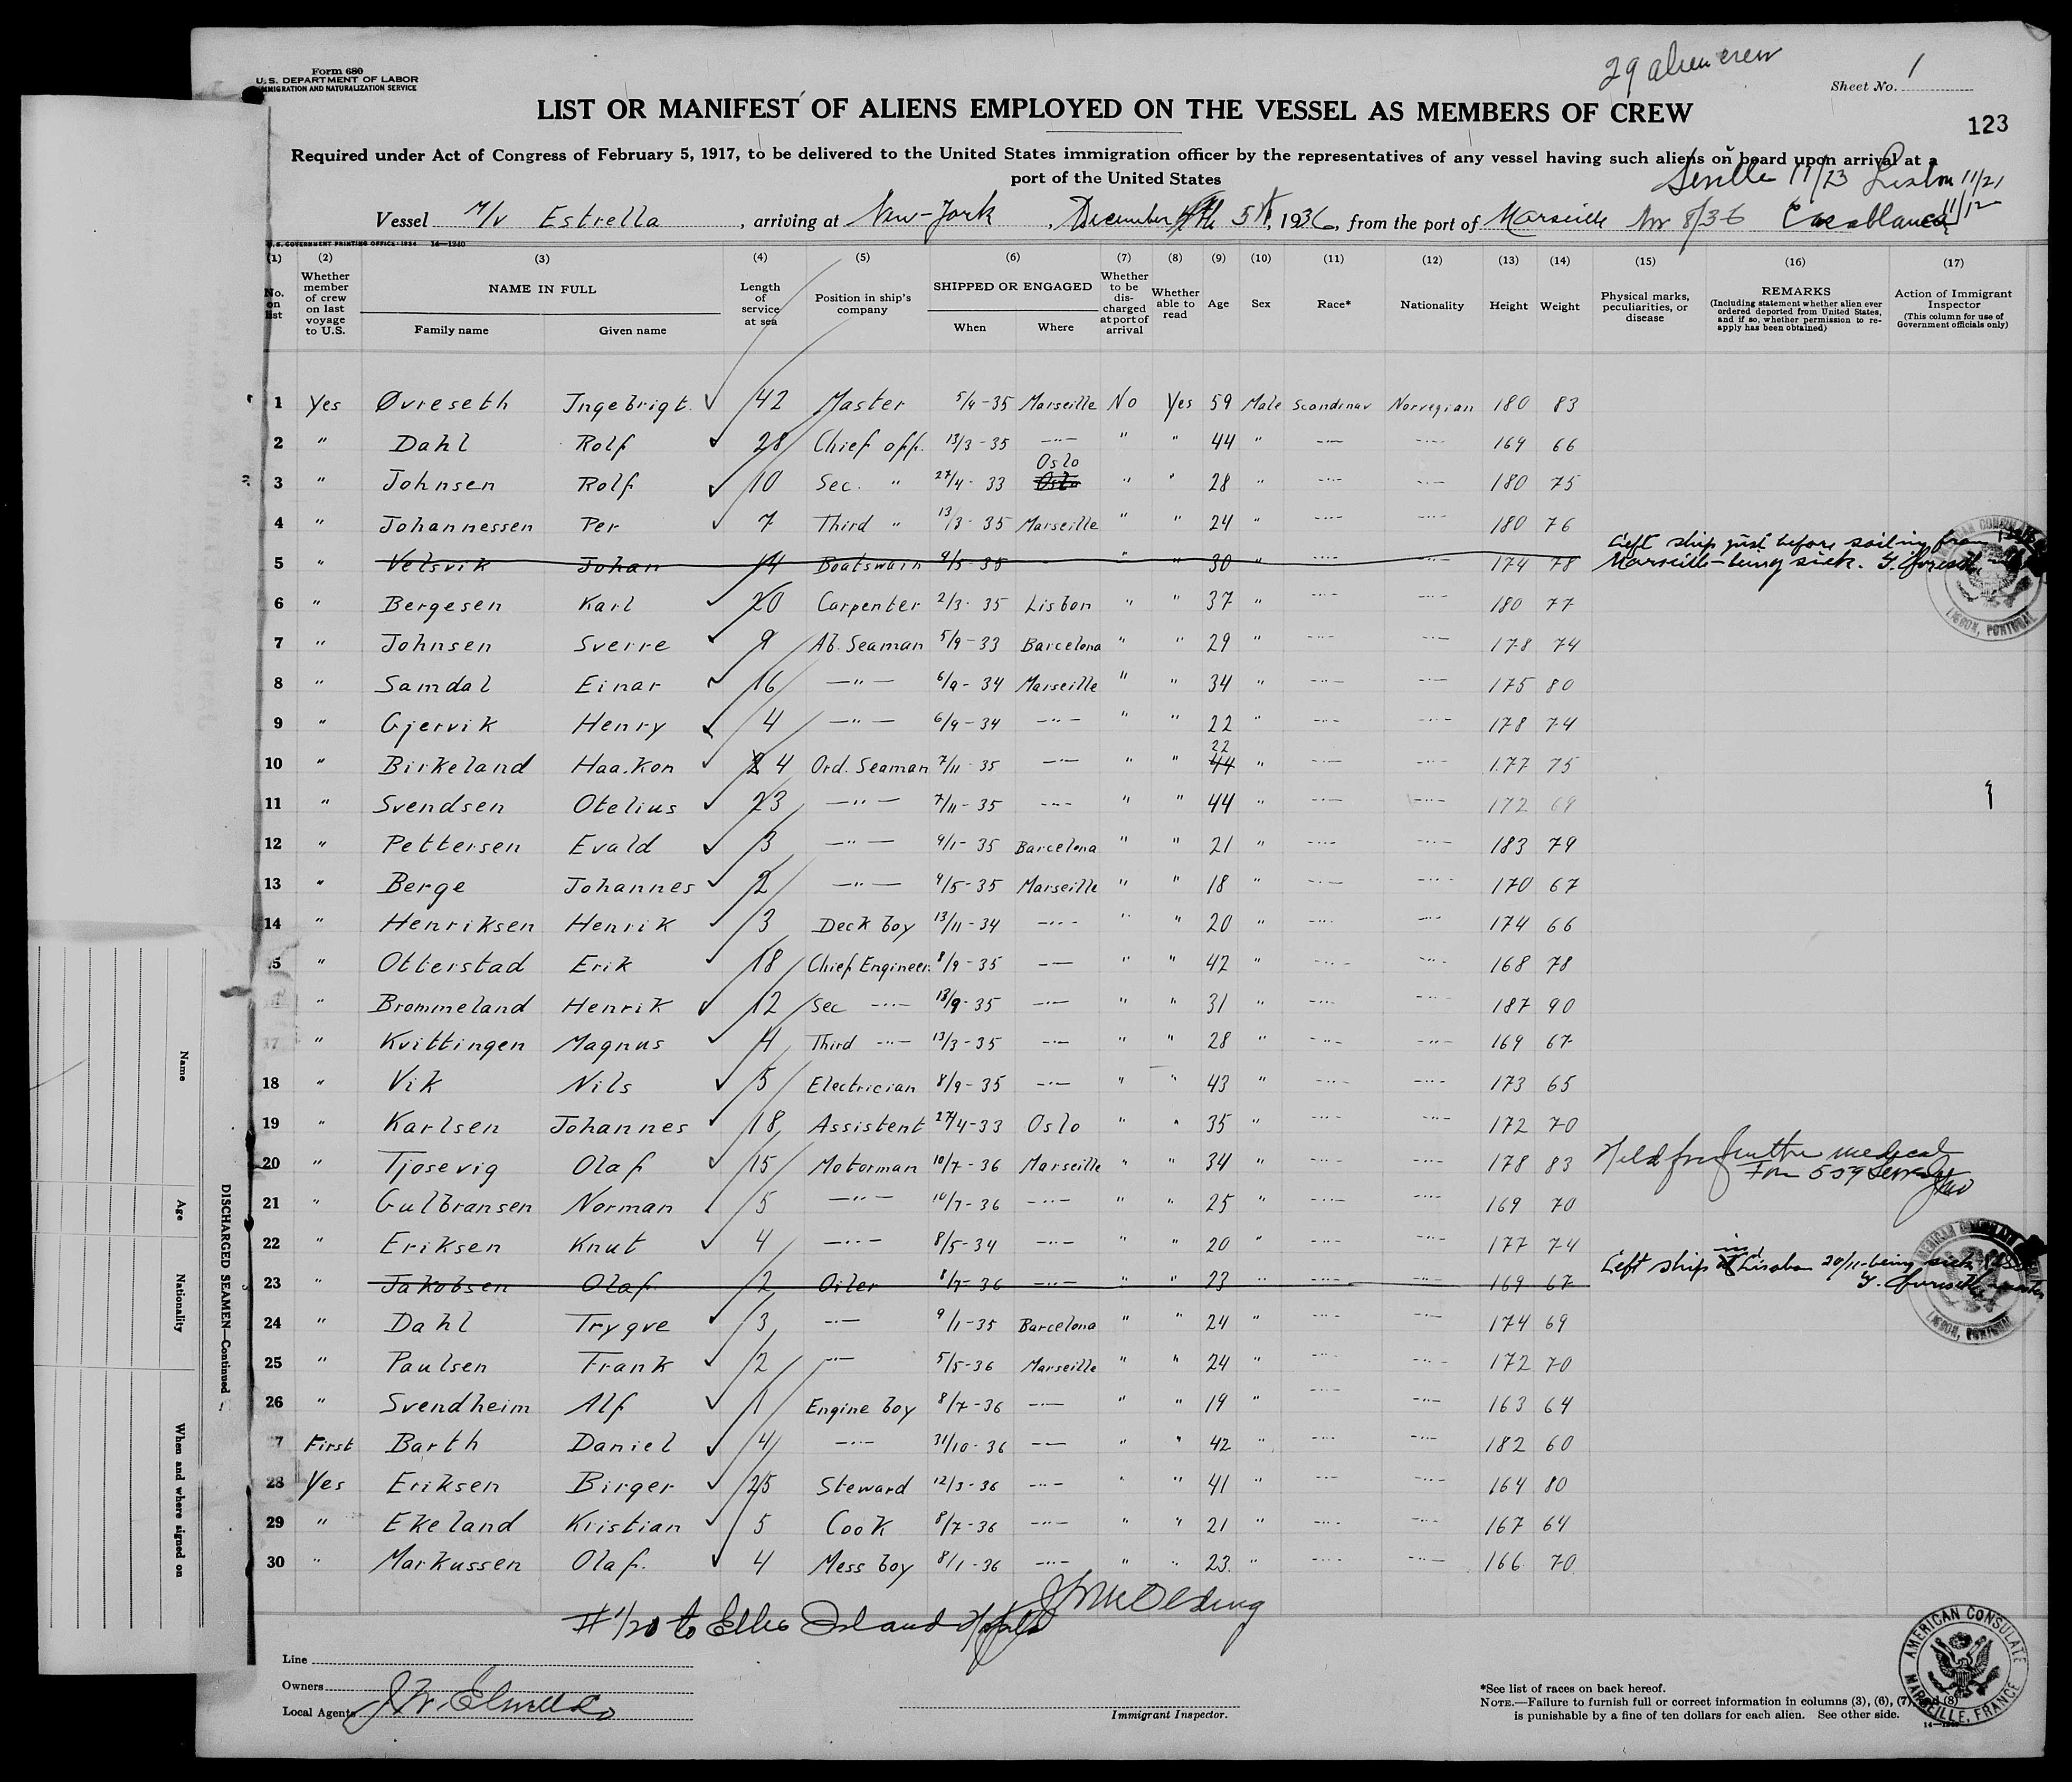 29 alien crew
Form 680
U. S. DEPARTMENT OF LABOR
IMMIGRATION AND NATURALIZATION SERVICE
Sheet No. 1
LIST OR MANIFEST OF ALIENS EMPLOYED ON THE VESSEL AS MEMBERS OF CREW
123
Required under Act of Congress of February 5, 1917, to be delivered to the United States immigration officer by the representatives of any vessel having such aliens on board upon arrival at a
port of the United States
Seville 11/23 Lisbon 11/21
Vessel M/V Estrella, arriving at New-York, December 5th, 1936, from the port of Marseille Nov 8/36 Casablanca 11/12
U. S. GOVERNMENT PRINTING OFFICE: 1934 14—1240
(1) (2) (3) (4) (5) (6) (7) (8) (9) (10) (11) (12) (13) (14) (15) (16) (17)
No. on list
Whether member of crew on last voyage to U.S.
NAME IN FULL
Family name Given name
Length of service at sea
Position in ship's company
SHIPPED OR ENGAGED
When Where
Whether to be discharged at port of arrival
Whether able to read
Age
Sex
Race*
Nationality
Height
Weight
Physical marks, peculiarities, or disease
REMARKS
(Including statement whether alien ever ordered deported from United States, and if so, whether permission to reapply has been obtained)
Action of Immigrant Inspector
(This column for use of Government officials only)
1 Yes Øvreseth Ingebrigt. 42 Master 5/4-35 Marseille No Yes 59 Male Scandinav Norvegian 180 83
2 " Dahl Rolf 28 Chief off. 13/3-35 -"- " " 44 " -"- -"- 169 66
3 " Johnsen Rolf 10 Sec. " 27/4-33 Oslo Oslo " " 28 " -"- -"- 180 75
4 " Johannessen Per 7 Third " 13/3-35 Marseille " " 24 " -"- -"- 180 76
5 " Velsvik Johan 14 Boatswain 4/5-35 " " 30 " -"- -"- 174 78 Left ship just before sailing from Marseille-being sick.
6 " Bergesen Karl 20 Carpenter 2/3-35 Lisbon " " 37 " -"- -"- 180 77
7 " Johnsen Sverre 9 Ab. Seaman 5/9-33 Barcelona " " 29 " -"- -"- 178 74
8 " Samdal Einar 16 -"- 6/9-34 Marseille " " 34 " -"- -"- 175 80
9 " Gjervik Henry 4 -"- 6/9-34 -"- " " 22 " -"- -"- 178 74
10 " Birkeland Haakon 4 Ord. Seaman 7/11-35 -"- " " 22 44 " -"- -"- 177 75
11 " Svendsen Otelius 23 -"- 7/11-35 -"- " " 44 " -"- -"- 172 69
12 " Pettersen Evald 3 -"- 9/1-35 Barcelona " " 21 " -"- -"- 183 79
13 " Berge Johannes 2 -"- 4/5-35 Marseille " " 18 " -"- -"- 170 67
14 " Henriksen Henrik 3 Deck boy 13/11-34 -"- " " 20 " -"- -"- 174 66
15 " Otterstad Erik 18 Chief Engineer. 8/9-35 -"- " " 42 " -"- -"- 168 78
" Brommeland Henrik 12 Sec -"- 13/9-35 -"- " " 31 " -"- -"- 187 90
17 " Kvittingen Magnus 4 Third -"- 13/3-35 -"- " " 28 " -"- -"- 169 67
18 " Vik Nils 5 Electrician 8/9-35 -"- " " 43 " -"- -"- 173 65
19 " Karlsen Johannes 18 Assistent 27/4-33 Oslo " " 35 " -"- -"- 172 70
20 " Tjosevig Olaf 15 Motorman 10/7-36 Marseille " " 34 " -"- -"- 178 83 Held for further medical
21 " Gulbransen Norman 5 -"- 10/7-36 -"- " " 25 " -"- -"- 169 70
22 " Eriksen Knut 4 -"- 8/5-34 -"- " " 20 " -"- -"- 177 74
23 " Jakobsen Olaf 2 Oiler 8/7-36 -"- " " 23 " -"- -"- 169 67 Left ship in Lisabon 20/11-being sick
24 " Dahl Trygve 3 -"- 9/1-35 Barcelona " " 24 " -"- -"- 174 69
25 " Paulsen Frank 2 -"- 5/5-36 Marseille " " 24 " -"- -"- 172 70
26 " Svendheim Alf 1 Engine boy 8/7-36 -"- " " 19 " -"- -"- 163 64
27 First Barth Daniel 4 -"- 31/10-36 -"- " " 42 " -"- -"- 182 60
28 Yes Eriksen Birger 25 Steward 12/3-36 -"- " " 41 " -"- -"- 164 80
29 " Ekeland Kristian 5 Cook 8/7-36 -"- " " 21 " -"- -"- 167 64
30 " Markussen Olaf. 4 Mess boy 8/1-36 -"- " " 23. " -"- -"- 166 70
to Ellis Island
Line
Owners
Local Agents
Immigrant Inspector.
*See list of races on back hereof.
NOTE.—Failure to furnish full or correct information in columns (3), (6), (7), and (8)
is punishable by a fine of ten dollars for each alien. See other side.
AMERICAN CONSULATE
MARSEILLE, FRANCE
LISBON, PORTUGAL
LISBON, PORTUGAL
Name
Age
Nationality
When and where signed on
DISCHARGED SEAMEN—Continued